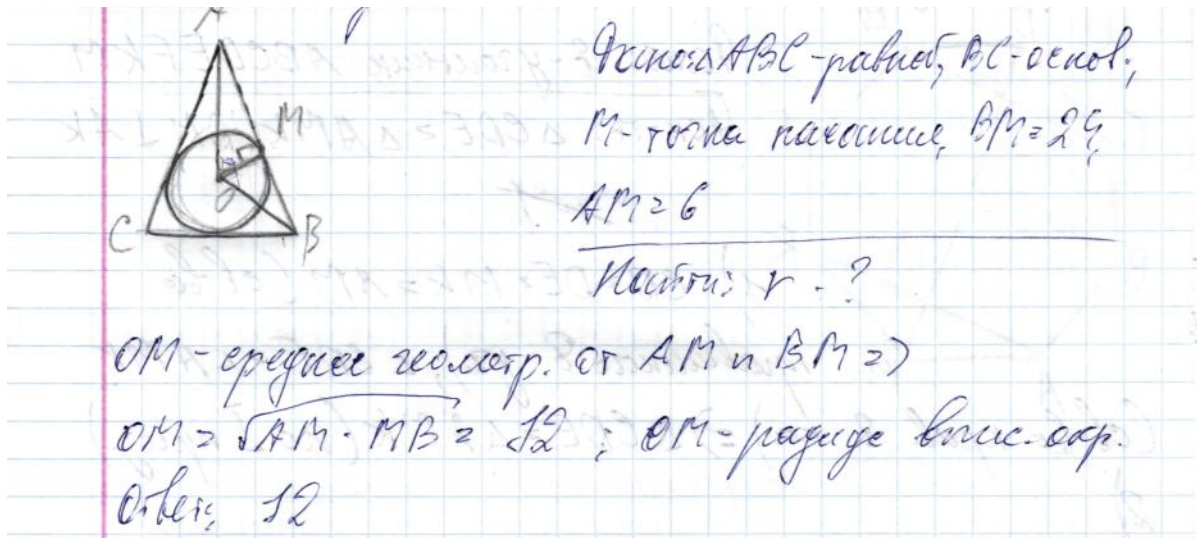 A
M
O
C
B
Дано: ΔABC - равноб, BC - основ.,
M - точка касания, BM = 24,
AM = 6
Найти: r - ?
OM - среднее геометр. от AM и BM =>
OM = √AM · MB = 12 ; OM - радиус впис. окр.
Ответ: 12